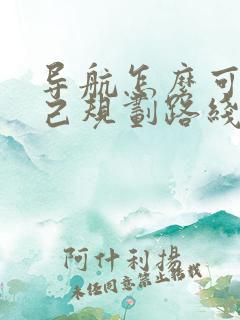 导航怎么可
己规劃路綫
阿什利揚
未经同意禁止转载